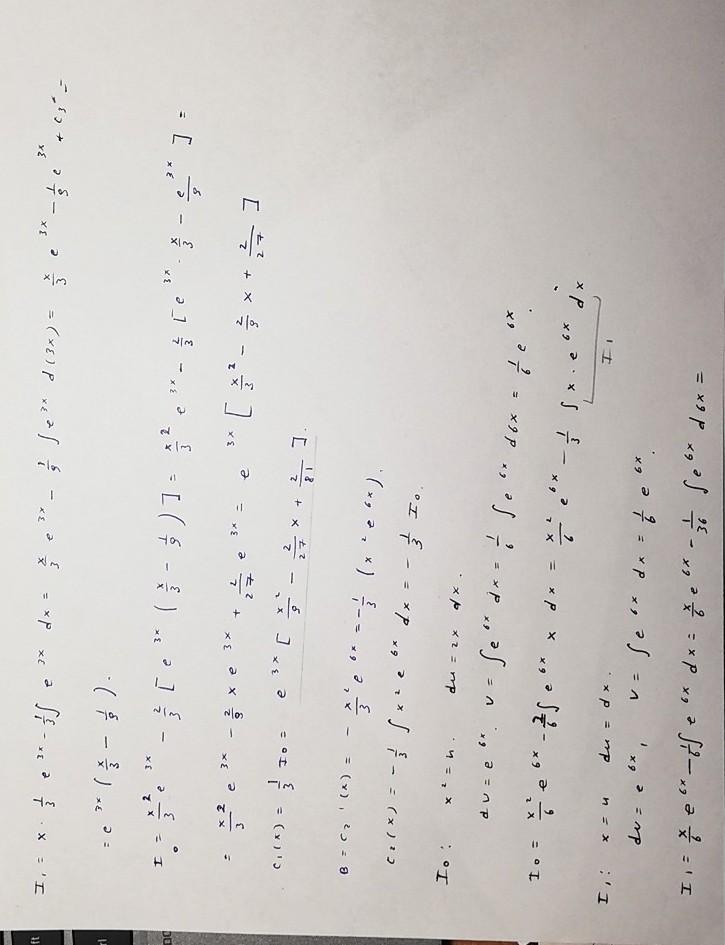 I₁ = x · 1/3 e^3x - 1/3 ∫ e^3x dx = x/3 e^3x - 1/9 ∫ e^3x d(3x) = x/3 e^3x - 1/9 e^3x + C₃ =
= e^3x (x/3 - 1/9).
I₀ = x²/3 e^3x - 2/3 [e^3x (x/3 - 1/9)] = x²/3 e^3x - 2/3 [e^3x · x/3 - e^3x/9] =
= x²/3 e^3x - 2/9 x e^3x + 2/27 e^3x = e^3x [x²/3 - 2/9 x + 2/27]
C₁(x) = 1/3 I₀ = e^3x [x²/9 - 2/27 x + 2/81].
B = C₂'(x) = - x²/3 e^6x = - 1/3 (x² e^6x).
C₂(x) = - 1/3 ∫ x² e^6x dx = - 1/3 I₀.
I₀: x² = u. du = 2x dx.
dv = e^6x. v = ∫ e^6x dx = 1/6 ∫ e^6x d6x = 1/6 e^6x.
I₀ = x²/6 e^6x - 2/6 ∫ e^6x x dx = x²/6 e^6x - 1/3 ∫ x · e^6x dx
I₁
I₁: x = u du = dx.
dv = e^6x, v = ∫ e^6x dx = 1/6 e^6x.
I₁ = x/6 e^6x - 1/6 ∫ e^6x dx = x/6 e^6x - 1/36 ∫ e^6x d6x =